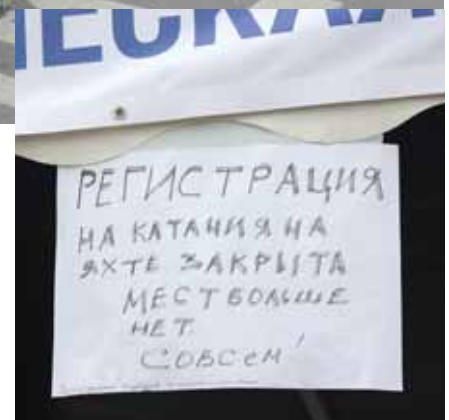 ЕСКАЯ
РЕГИСТРАЦИЯ
НА КАТАНИЯ НА
ЯХТЕ ЗАКРЫТА
МЕСТ БОЛЬШЕ
НЕТ
СОВСЕМ!